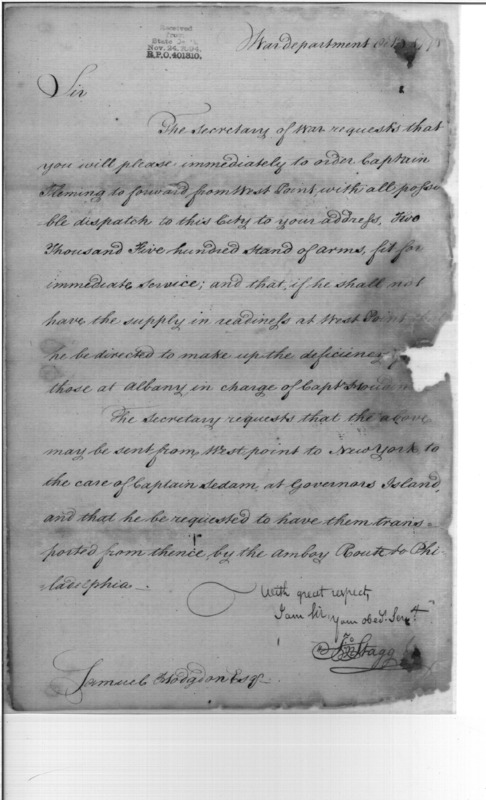 Received
from
State De
Nov. 24,
R.P.O. 401310.
War department
Sir
The Secretary of War requests that
you will please immediately to order Captain
Fleming to forward from West Point, with all possi
ble dispatch to this City to your address, Two
Thousand Five hundred Stand of arms, fit for
immediate Service; and that, if he shall not
have the supply in readiness at West Point
he be directed to make up the deficiency
those at Albany in charge of Capt
The Secretary requests that the above
may be sent from West point to New York to
the care of Captain Sedam, at Governors Island,
and that he be requested to have them trans=
ported from thence by the Amboy Route to Phi-
ladelphia.
With great respect,
I am Sir, Your obed. Serv.t
Jno Stagg
Samuel Hodgdon Esqr